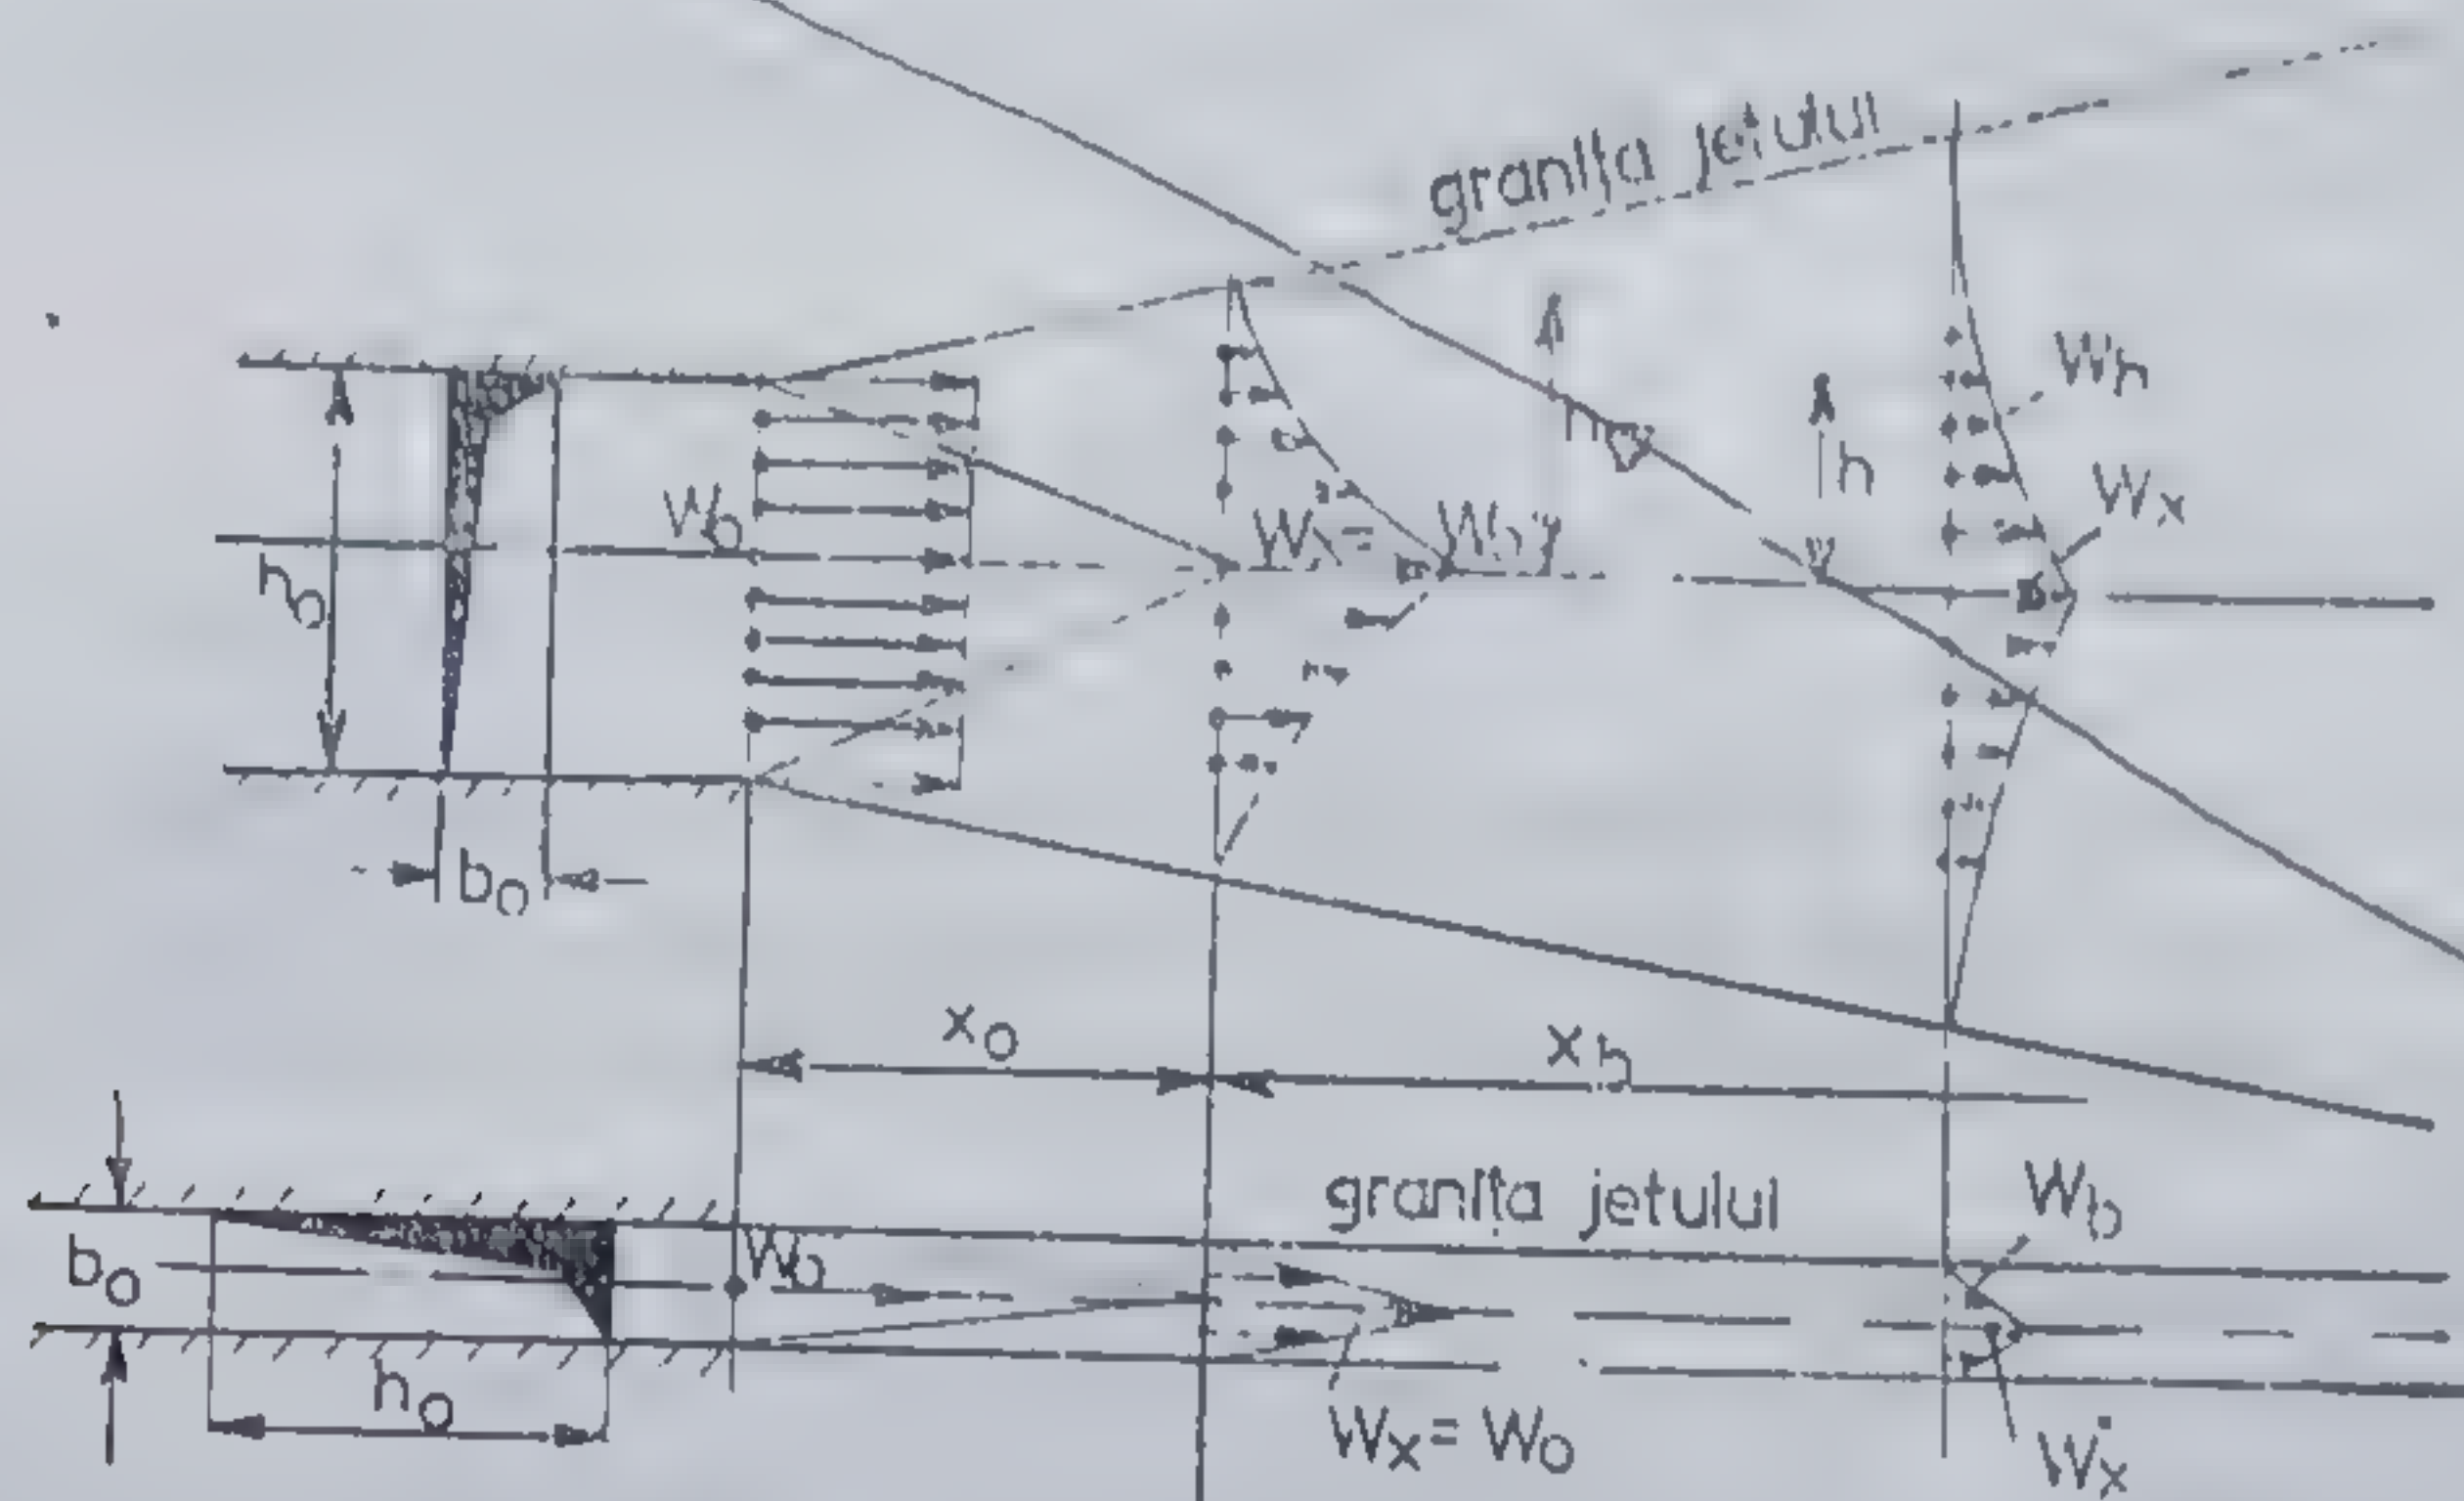 graniţa jetului
Wh
h
Wx
Wo
ho
bo
xo
xh
graniţa jetului
Wb
bo
Wo
ho
Wx = Wo
Wx